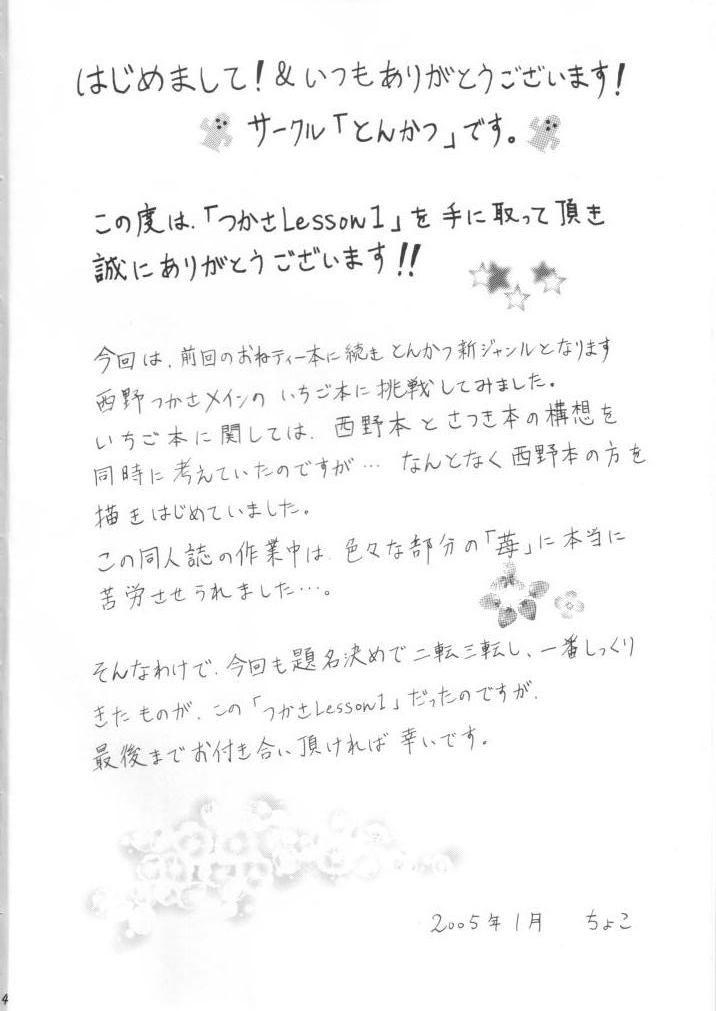 はじめまして！＆いつもありがとうございます！
サークル「とんかつ」です。
この度は、「つかさLesson1」を手に取って頂き
誠にありがとうございます!!
今回は、前回のおねティー本に続きとんかつ新ジャンルとなります
西野つかさメインのいちご本に挑戦してみました。
いちご本に関しては、西野本とさつき本の構想を
同時に考えていたのですが… なんとなく西野本の方を
描きはじめていました。
この同人誌の作業中は、色々な部分の「苺」に本当に
苦労させられました…。
そんなわけで、今回も題名決めで二転三転し、一番しっくり
きたものが、この「つかさLesson1」だったのですが、
最後までお付き合い頂ければ幸いです。
2005年1月 ちょこ
4